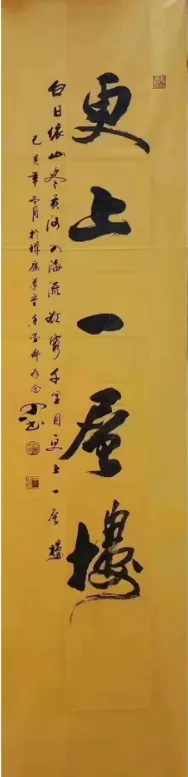 更上一层樓
白日依山尽黄河入海流欲穷千里目更上一层樓
己亥年